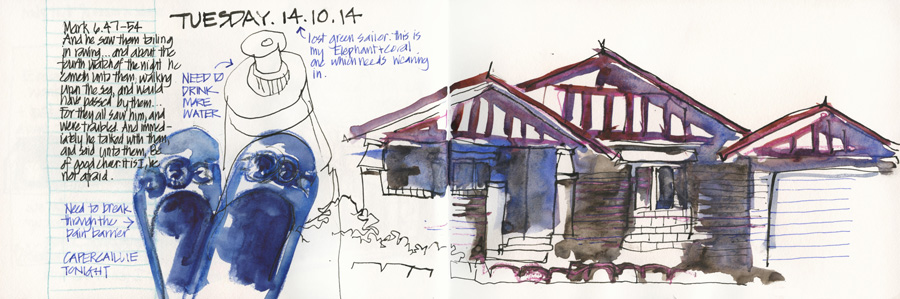 TUESDAY. 14.10.14
Mark 6.47-54
And he saw them toiling
in rowing... and about the
fourth watch of the night he
cometh unto them, walking
upon the sea, and would
have passed by them...
For they all saw him, and
were troubled. And immed-
iately he talked with them,
and said unto them, Be
of good cheer: it is I, be
not afraid.
NEED TO
DRINK
MORE
WATER
lost green sailor. this is
my Elephant & Coral
one which needs wearing
in.
Need to break
through the
pain barrier
CAPERCAILLIE
TONIGHT